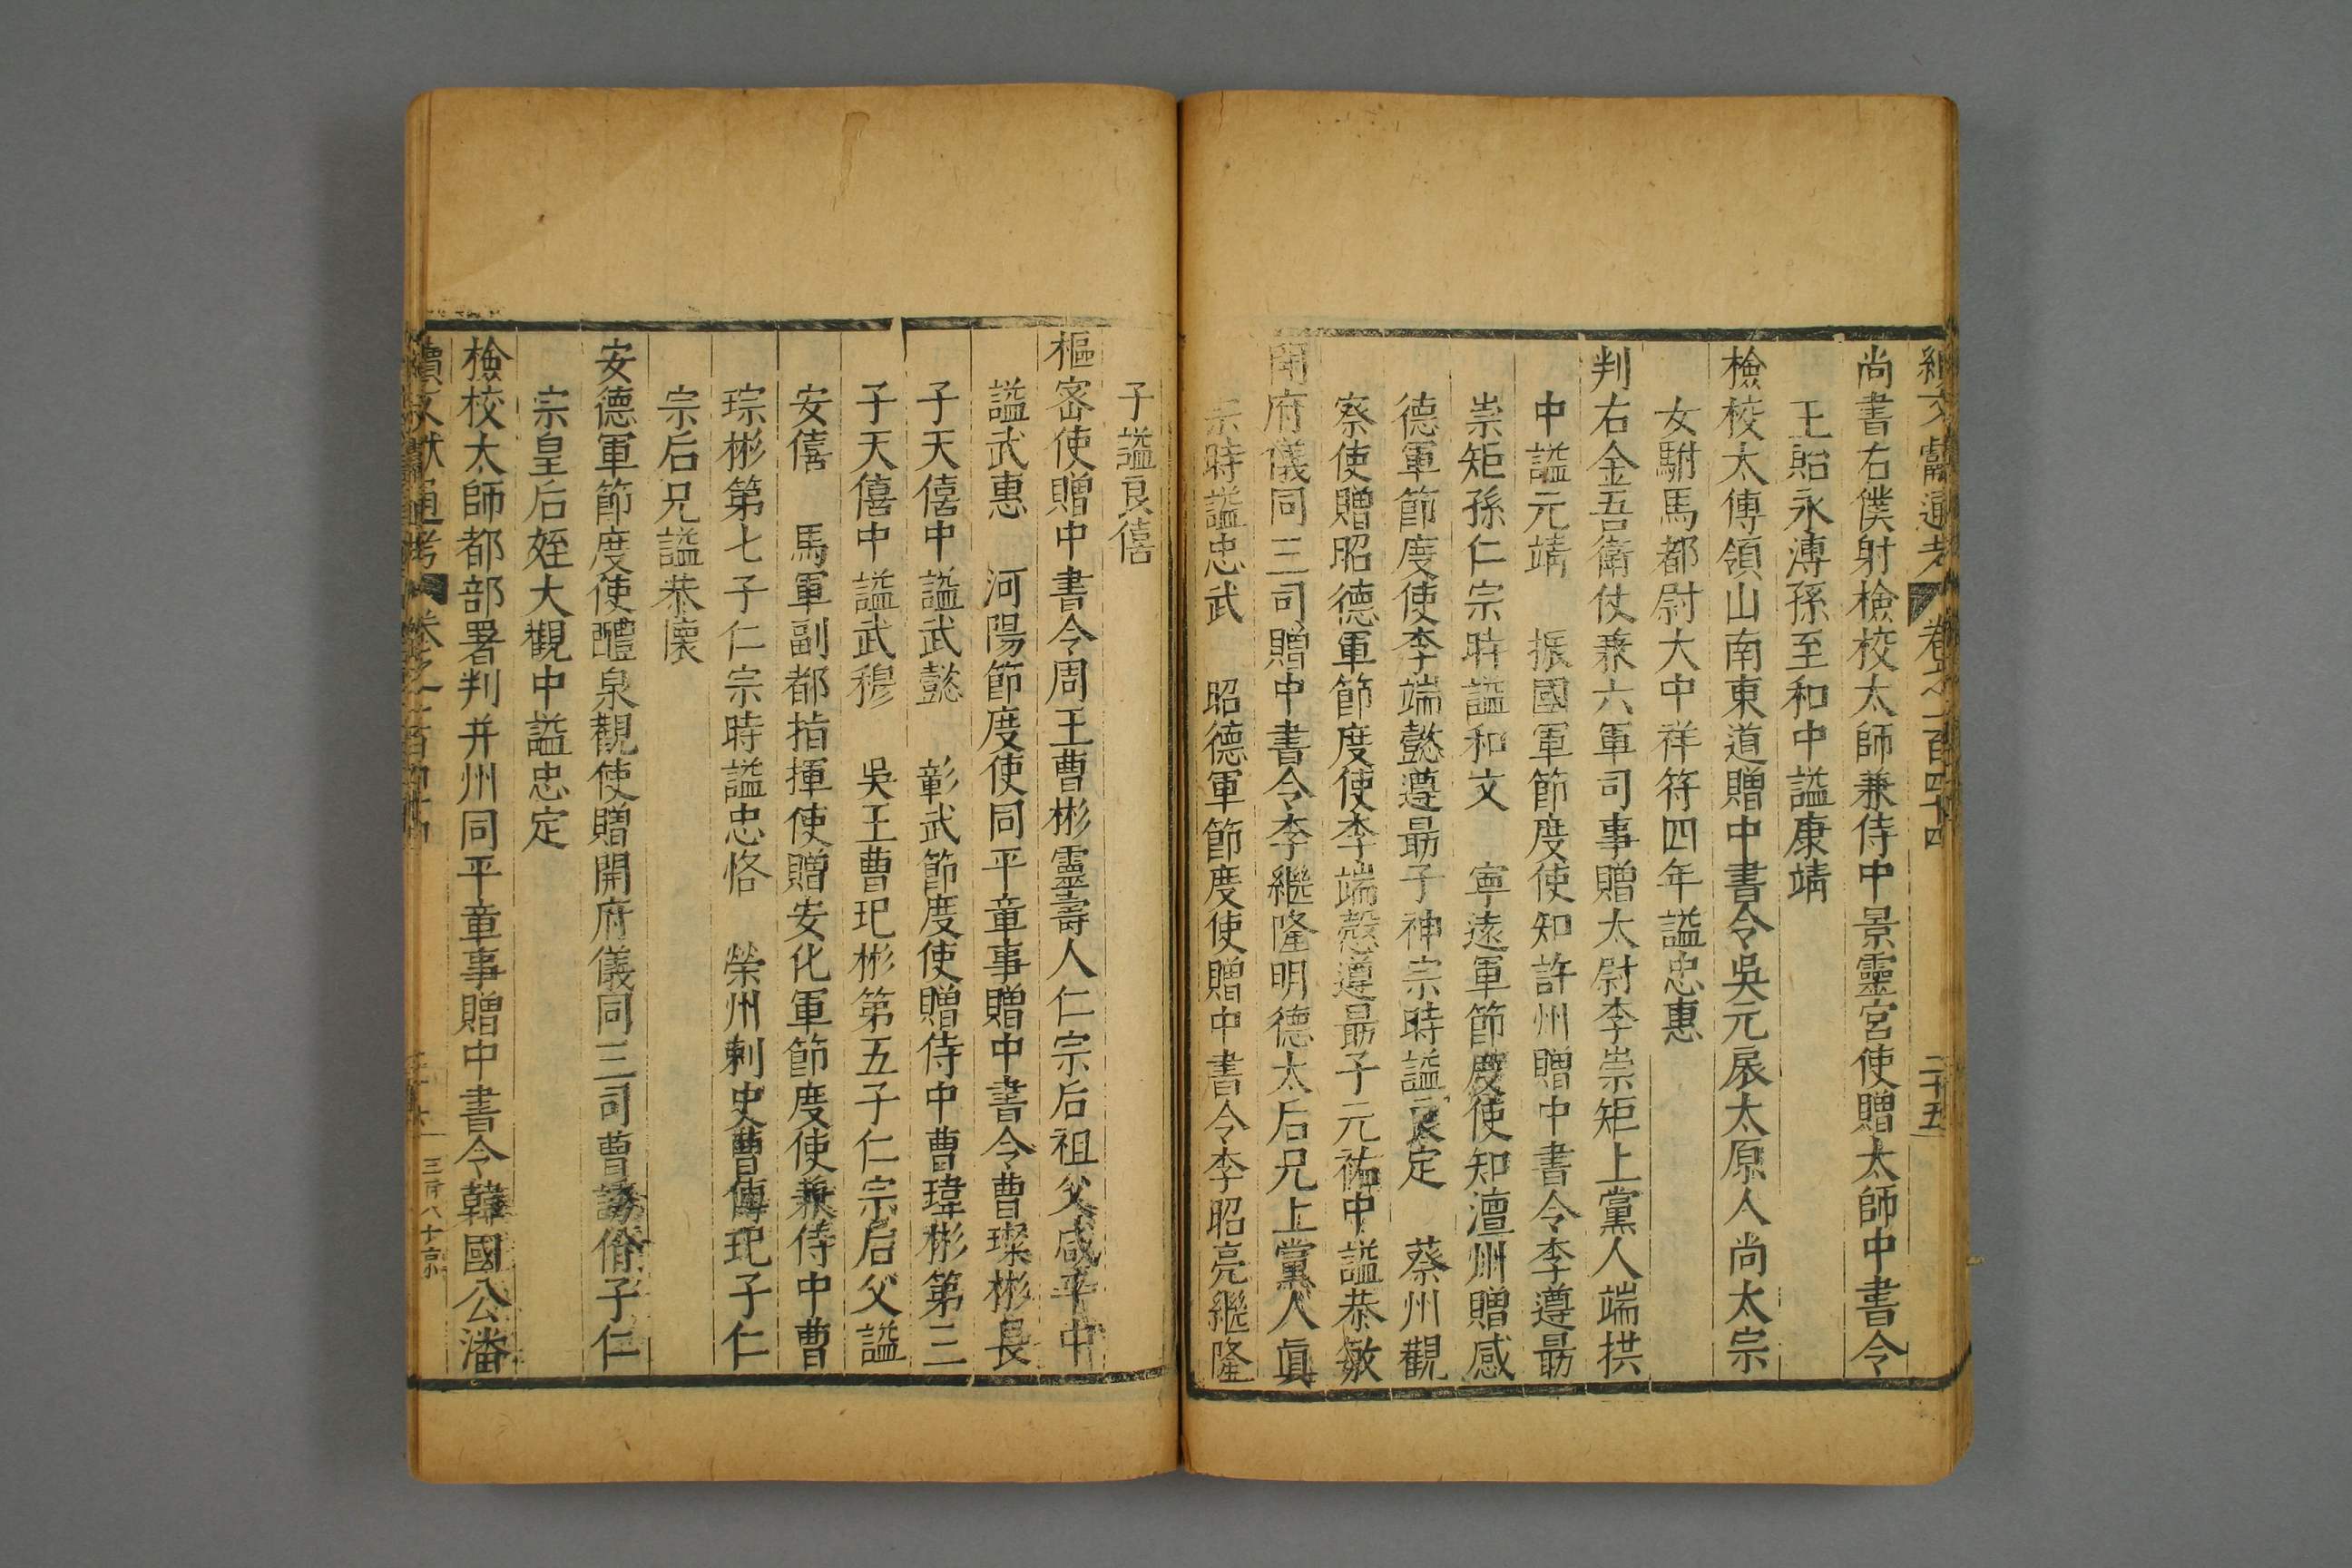 續文獻通考 卷之一百四十四 二十五
尚書右僕射檢校太師兼侍中景靈宮使贈太師中書令
王貽永溥孫至和中謚康靖
檢校太傅領山南東道贈中書令吳元扆太原人尚太宗
女駙馬都尉大中祥符四年謚忠惠
判右金吾衛仗兼六軍司事贈太尉李崇矩上黨人端拱
中謚元靖 振國軍節度使知許州贈中書令李遵勗
崇矩孫仁宗時謚和文 寧遠軍節度使知澶州贈感
德軍節度使李端懿遵勗子神宗時謚良定 蔡州觀
察使贈昭德軍節度使李端愨遵勗子元祐中謚恭敏
開府儀同三司贈中書令李繼隆明德太后兄上黨人眞
宗時謚忠武 昭德軍節度使贈中書令李昭亮繼隆
子謚良僖
樞密使贈中書令周王曹彬靈壽人仁宗后祖父咸平中
謚武惠 河陽節度使同平章事贈中書令曹璨彬長
子天僖中謚武懿 彰武節度使贈侍中曹瑋彬第三
子天僖中謚武穆 吳王曹玘彬第五子仁宗后父謚
安僖 馬軍副都指揮使贈安化軍節度使兼侍中曹
琮彬第七子仁宗時謚忠恪 榮州刺史曹傳玘子仁
宗后兄謚恭懷
安德軍節度使醴泉觀使贈開府儀同三司曹誘佾子仁
宗皇后姪大觀中謚忠定
檢校太師都部署判并州同平章事贈中書令韓國公潘
續文獻通考 卷之一百四十四